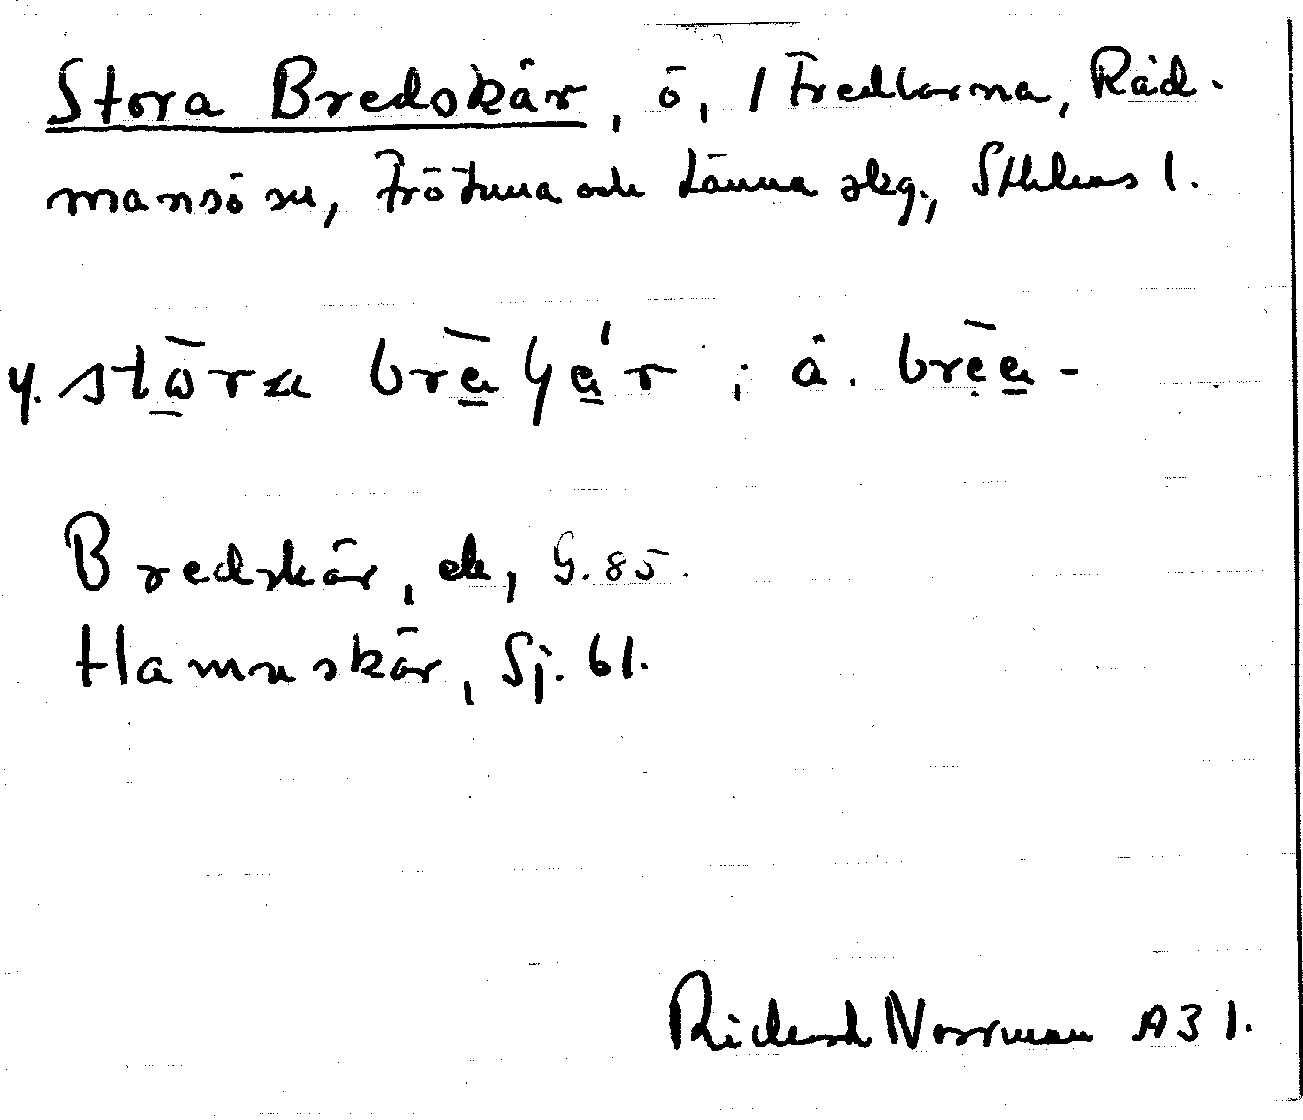 Stora Bredskär, ö, i Fredlarna, Råd-
mansö sn, Frötuna och Länna skg., Sthlms l.
y. stōra brḕɥä́r ; ä. brḕä-
Bredskär, ek, G. 85.
Hamnskär, Sj. 61.
Rickard Norrman A31.